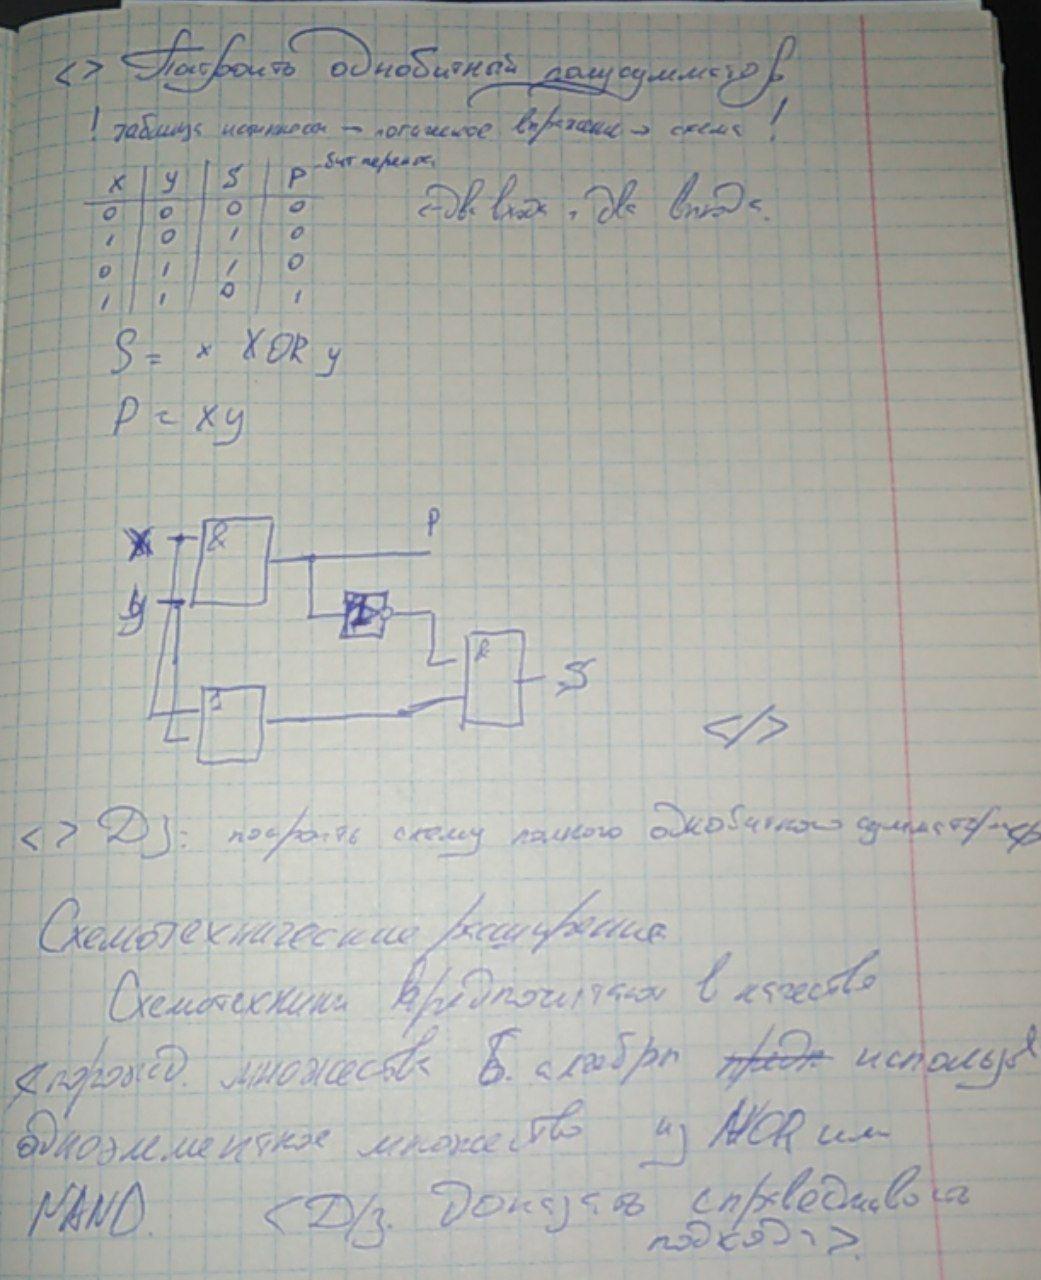 <> Построить однобитный полусумматор
! таблица истинности → логическое выражение → схема !
x y S P - бит переноса
0 0 0 0
← два входа, два выхода.
1 0 1 0
0 1 1 0
1 1 0 1
S = x XOR y
P = xy
X & P
y 1 & S
1
</>
<> Д/з: построить схему полного однобитного сумматора </>
Схемотехнические расширения
Схемотехники предпочитают в качестве
порожд. множества Б. алгебры использ
одноэлементное множество из NOR или
NAND. <Д/з. Доказать справедливость
подхода>.